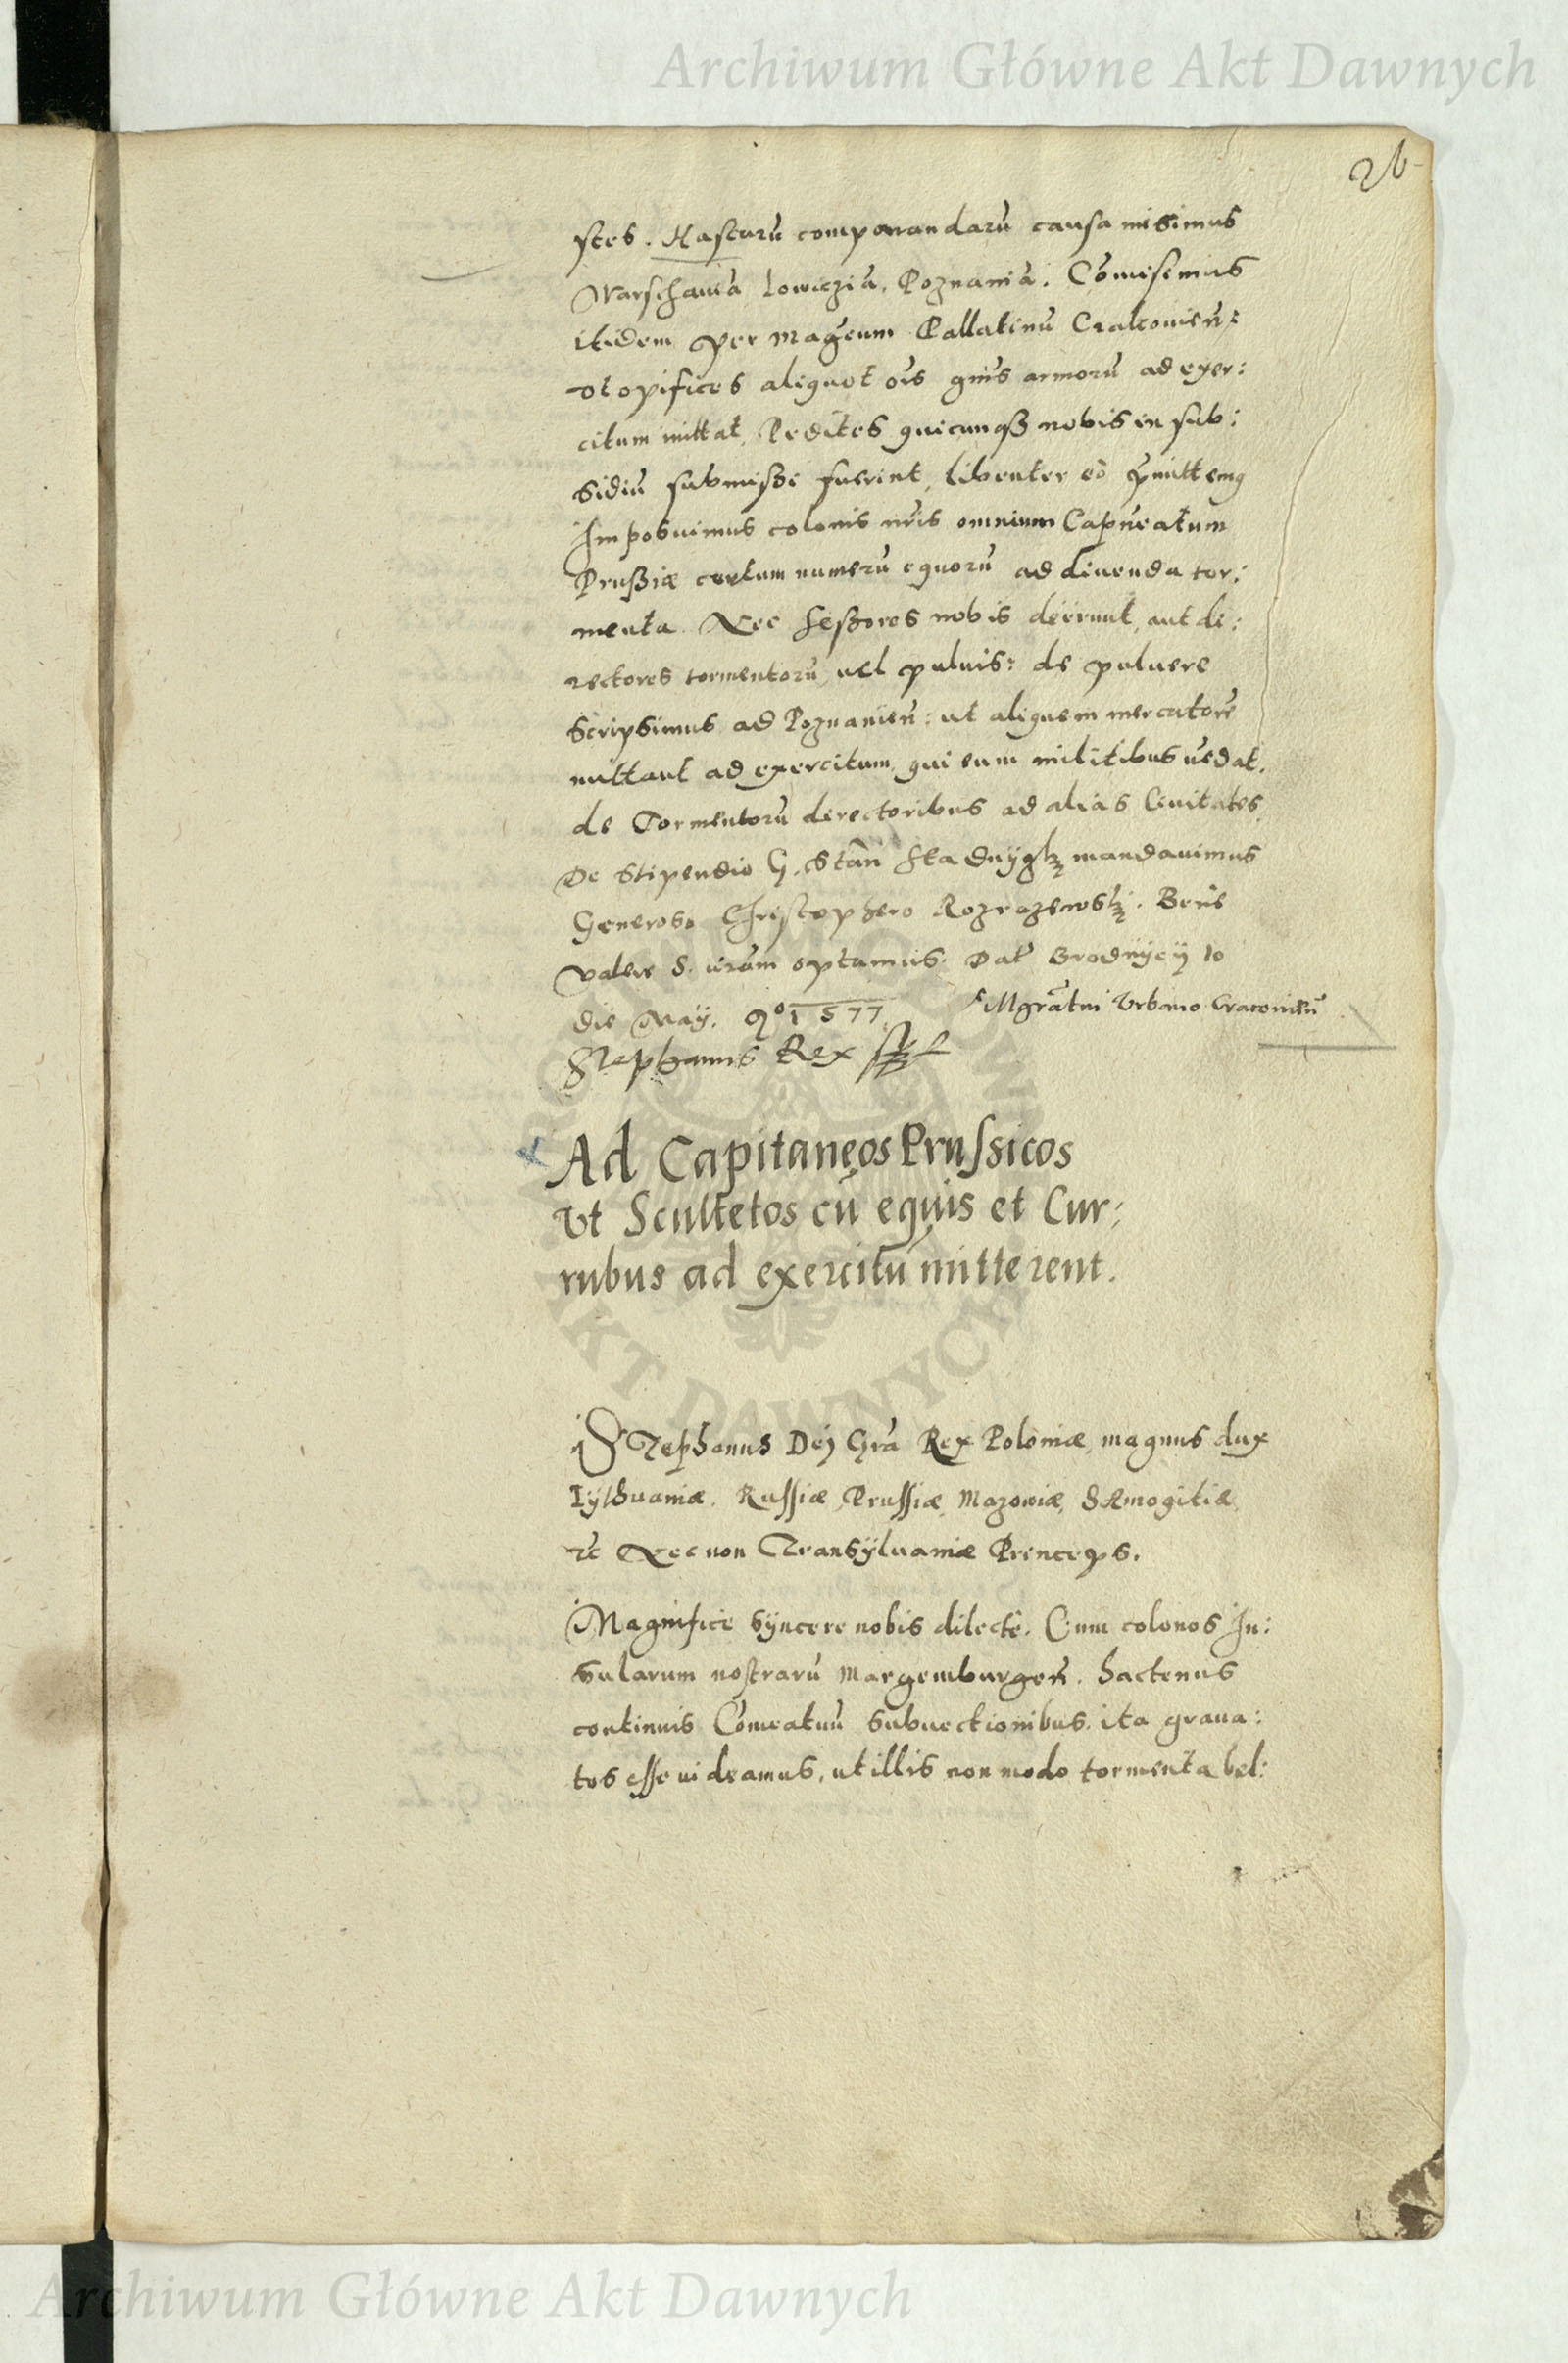 Archiwum Główne Akt Dawnych
26
stes. Hastarū comparandarū causa misimus
Warschauiā, Lowicziā, Poznaniā. Cōmisimus
itidem per Magcum Pallatinū Cracouien̄:
vt opifices aliquot oīs gnīs armorū ad exer:
citum mittat, Pedites quicunqȝ nobis in sub:
sidiū submißi fuerint, libenter eò
Imposuimus colonis nr̄is omnium Capneatum
Prußiæ certum numerū equorū ad vehenda tor:
menta. Nec feßores nobis deerunt, aut di:
rectores tormentorū, uel puluis: de puluere
Scripsimus ad Poznanien̄: ut aliquem mercatorē
mittant ad exercitum, qui eum militibus uēdat.
de Tormentorū derectoribus ad alias Ciuitates,
De Stipendio G. Stan mandauimus
Generoso Christophero Rozrazewskȝ. Bene
valere S. vram optamus. Dat Brodnycy 10
die May. Aº 1577. Mgratui Vrbano Cracouien̄
Stephanus Rex
Ad Capitaneos Prussicos
Vt Scultetos cū equis et Cur:
rubus ad exercitū mitterent.
Stephanus Dej Gra Rex Poloniæ, magnus dux
Lythuaniæ, Russiæ, Prussiæ, Mazowiæ, SAmogitiæ,
rc Nec non Transyluaniæ Princeps.
Magnifice syncere nobis dilecte. Cum colonos In:
sularum nostrarū Margemburgen̄. hactenus
continuis Cōmeatuū subuectionibus, ita graua:
tos esse uideamus, ut illis non modo tormenta bel:
Archiwum Główne Akt Dawnych